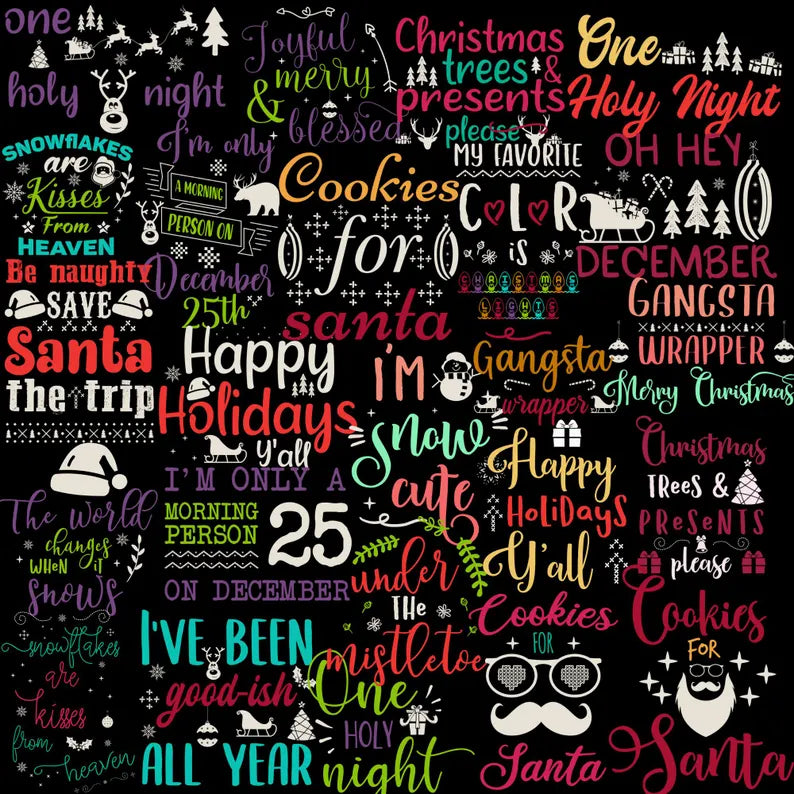 one
holy night
Joyful
merry
&
blessed
Christmas
trees &
presents
please
One
Holy Night
SNOWflAKES
are
Kisses
From
HEAVEN
I'm only
A MORNING
PERSON ON
December
25th
Cookies
for
santa
MY FAVORITE
COLOR
is
CHRISTMAS
LIGHTS
OH HEY
DECEMBER
Be naughty
SAVE
Santa
the trip
Happy
Holidays
Y'all
I'M
snow
cute
Gangsta
wrapper
GANGSTA
WRAPPER
Merry Christmas
The world
changes
WHEN iT
snows
I'M ONLY A
MORNING
PERSON
25
ON DECEMBER
under
THE
mistletoe
Happy
HoliDays
Y'all
Christmas
TReeS &
PReSeNTS
please
snowflakes
are
kisses
from
heaven
I'VE BEEN
good-ish
ALL YEAR
One
HOLY
night
Cookies
FOR
Santa
Cookies
FOR
Santa